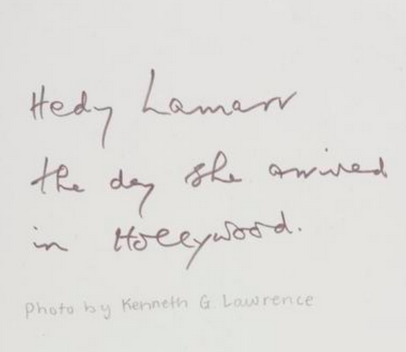 Hedy Lamarr
the day she arrived
in Hollywood.
Photo by Kenneth G Lawrence